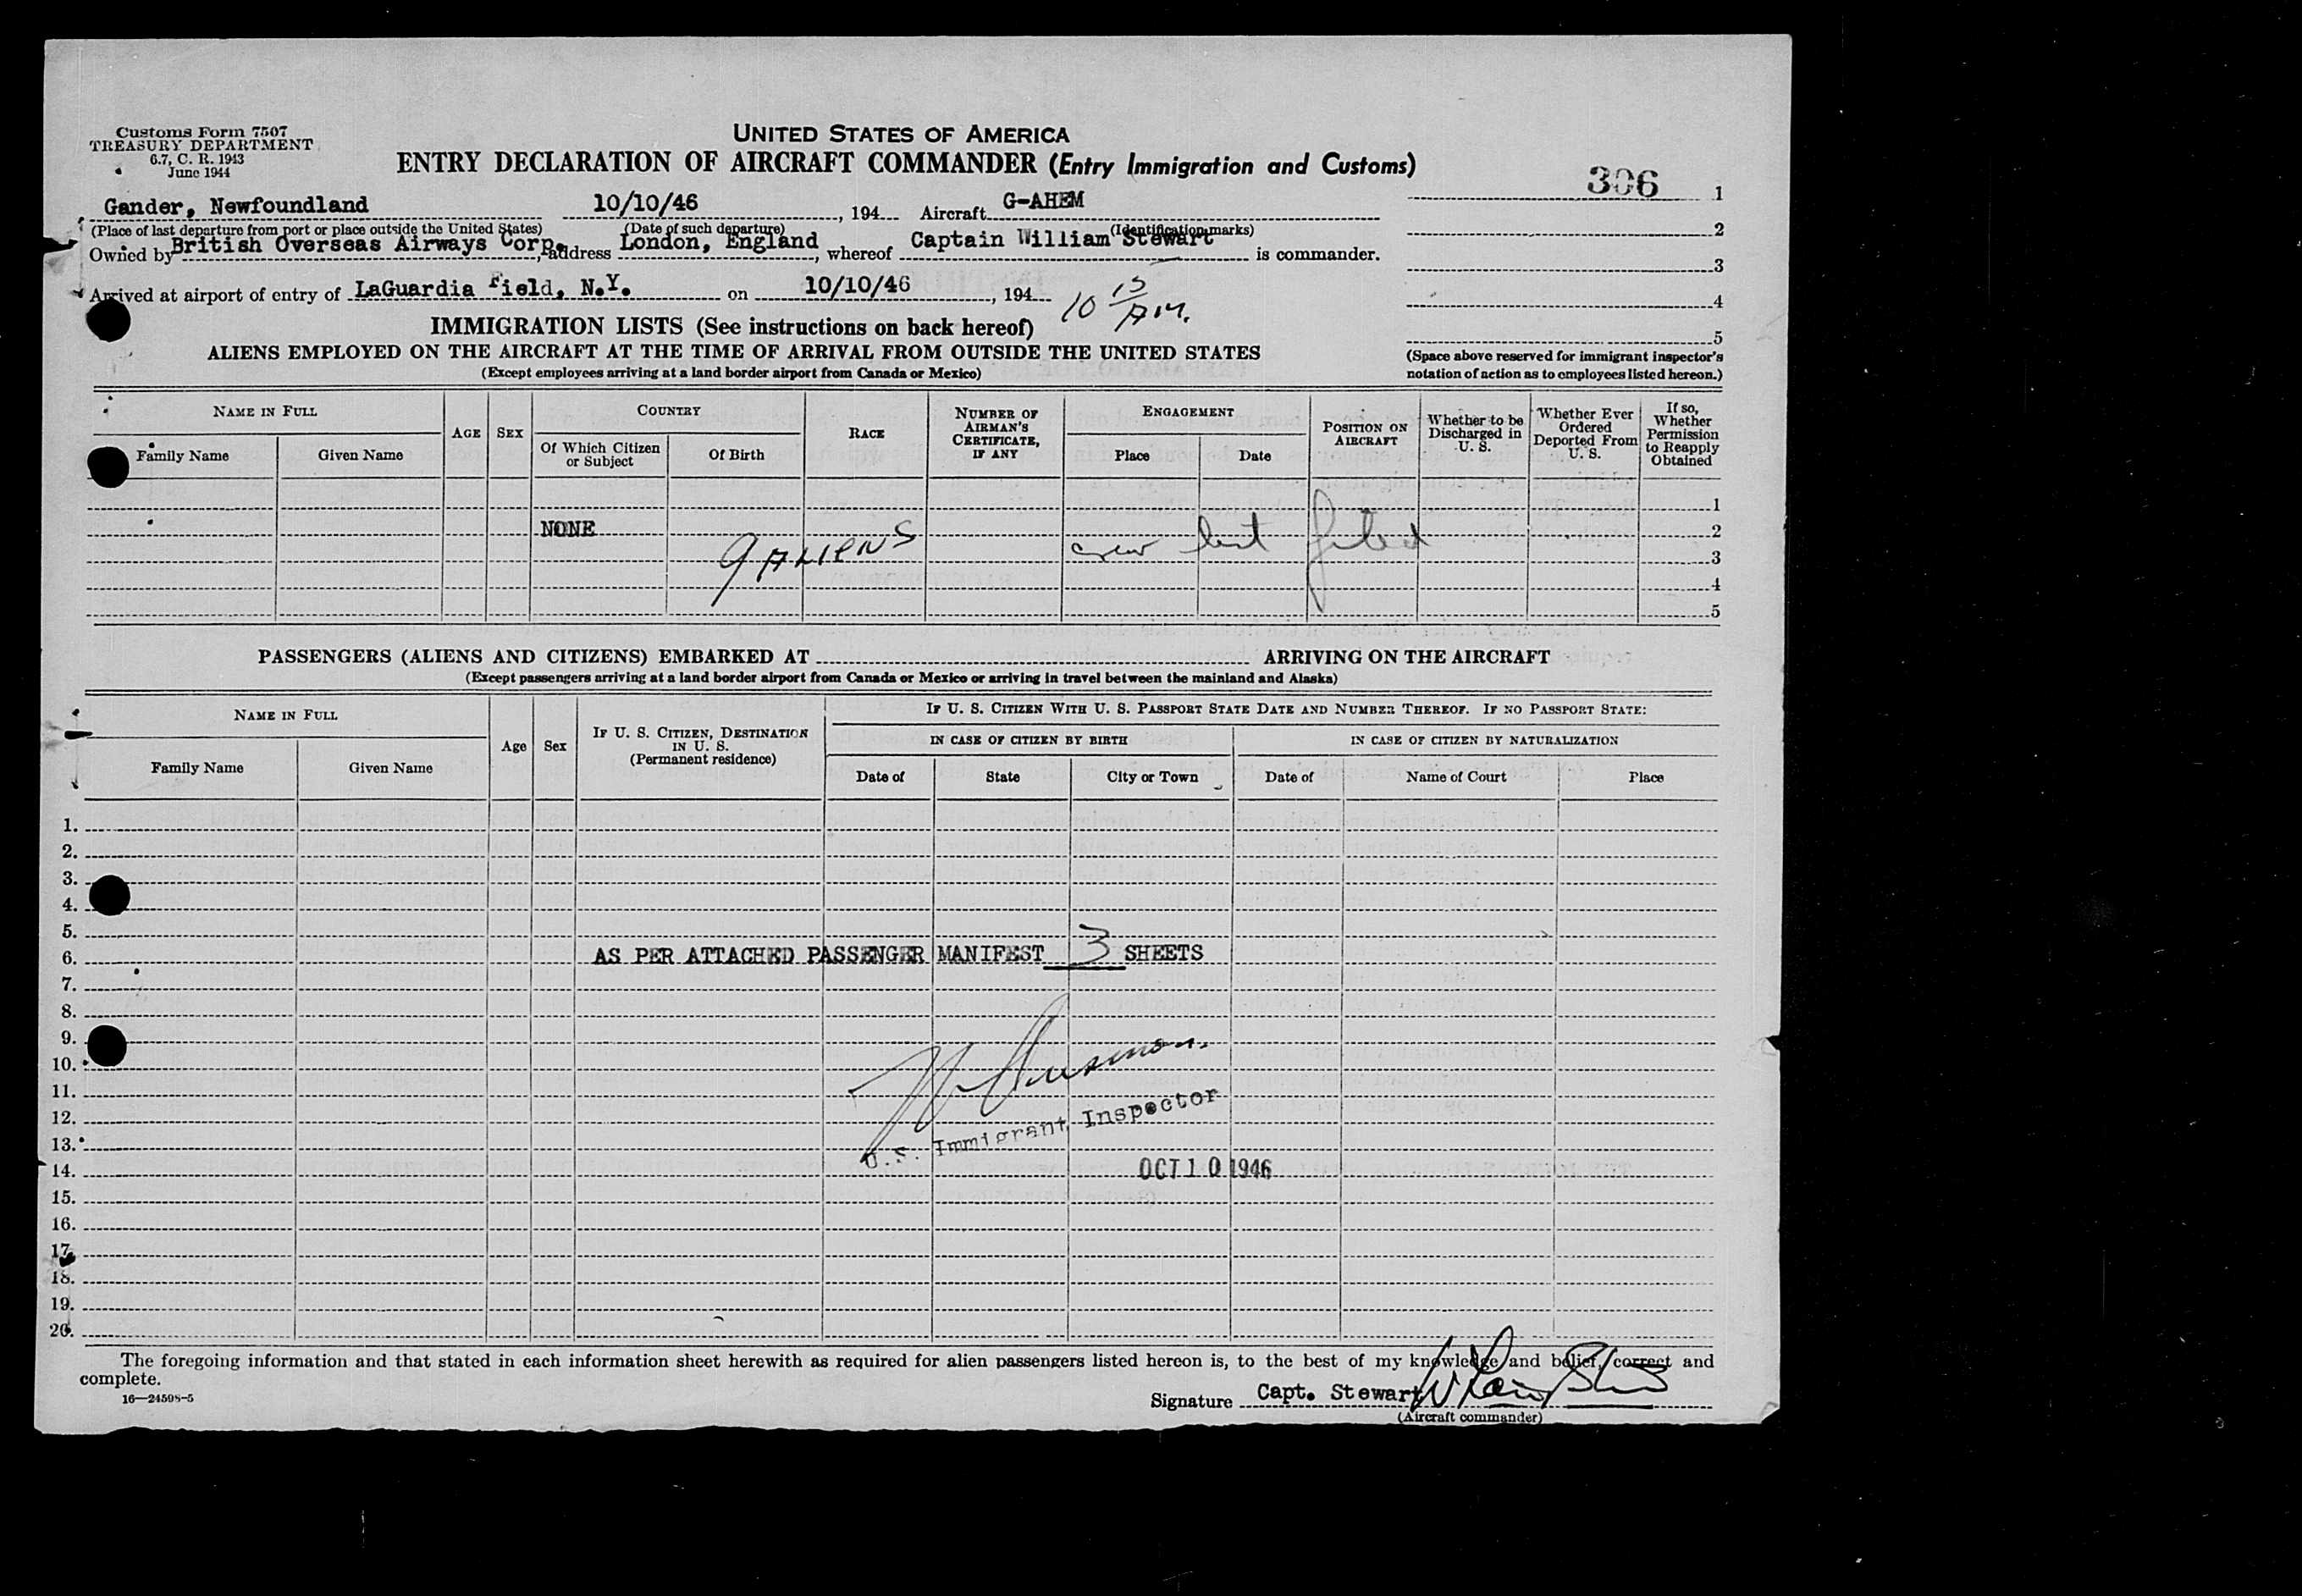 Customs Form 7507
TREASURY DEPARTMENT
6.7, C. R. 1943
June 1944
UNITED STATES OF AMERICA
ENTRY DECLARATION OF AIRCRAFT COMMANDER (Entry Immigration and Customs)
306 1
Gander, Newfoundland 10/10/46, 194 Aircraft G-AHEM
(Place of last departure from port or place outside the United States) (Date of such departure) (Identification marks)
2
Owned by British Overseas Airways Corp., address London, England, whereof Captain William Stewart is commander.
3
Arrived at airport of entry of LaGuardia Field, N.Y. on 10/10/46, 194 10 15 AM.
4
5
IMMIGRATION LISTS (See instructions on back hereof)
ALIENS EMPLOYED ON THE AIRCRAFT AT THE TIME OF ARRIVAL FROM OUTSIDE THE UNITED STATES
(Except employees arriving at a land border airport from Canada or Mexico)
(Space above reserved for immigrant inspector's
notation of action as to employees listed hereon.)
NAME IN FULL
Family Name Given Name
AGE SEX
COUNTRY
Of Which Citizen
or Subject
Of Birth
RACE
NUMBER OF
AIRMAN'S
CERTIFICATE,
IF ANY
ENGAGEMENT
Place Date
POSITION ON
AIRCRAFT
Whether to be
Discharged in
U. S.
Whether Ever
Ordered
Deported From
U. S.
If so,
Whether
Permission
to Reapply
Obtained
1
NONE 2
9 ALIENS crew list filed 3
4
5
PASSENGERS (ALIENS AND CITIZENS) EMBARKED AT ARRIVING ON THE AIRCRAFT
(Except passengers arriving at a land border airport from Canada or Mexico or arriving in travel between the mainland and Alaska)
NAME IN FULL
Family Name Given Name
Age Sex
IF U. S. CITIZEN, DESTINATION
IN U. S.
(Permanent residence)
IF U. S. CITIZEN WITH U. S. PASSPORT STATE DATE AND NUMBER THEREOF. IF NO PASSPORT STATE:
IN CASE OF CITIZEN BY BIRTH IN CASE OF CITIZEN BY NATURALIZATION
Date of State City or Town Date of Name of Court Place
1.
2.
3.
4.
5.
6. AS PER ATTACHED PASSENGER MANIFEST 3 SHEETS
7.
8.
9.
10.
11.
12.
13.
U.S. Immigrant Inspector
14. OCT 10 1946
15.
16.
17.
18.
19.
20.
The foregoing information and that stated in each information sheet herewith as required for alien passengers listed hereon is, to the best of my knowledge and belief, correct and
complete.
16—24598-5
Signature Capt. Stewart
(Aircraft commander)